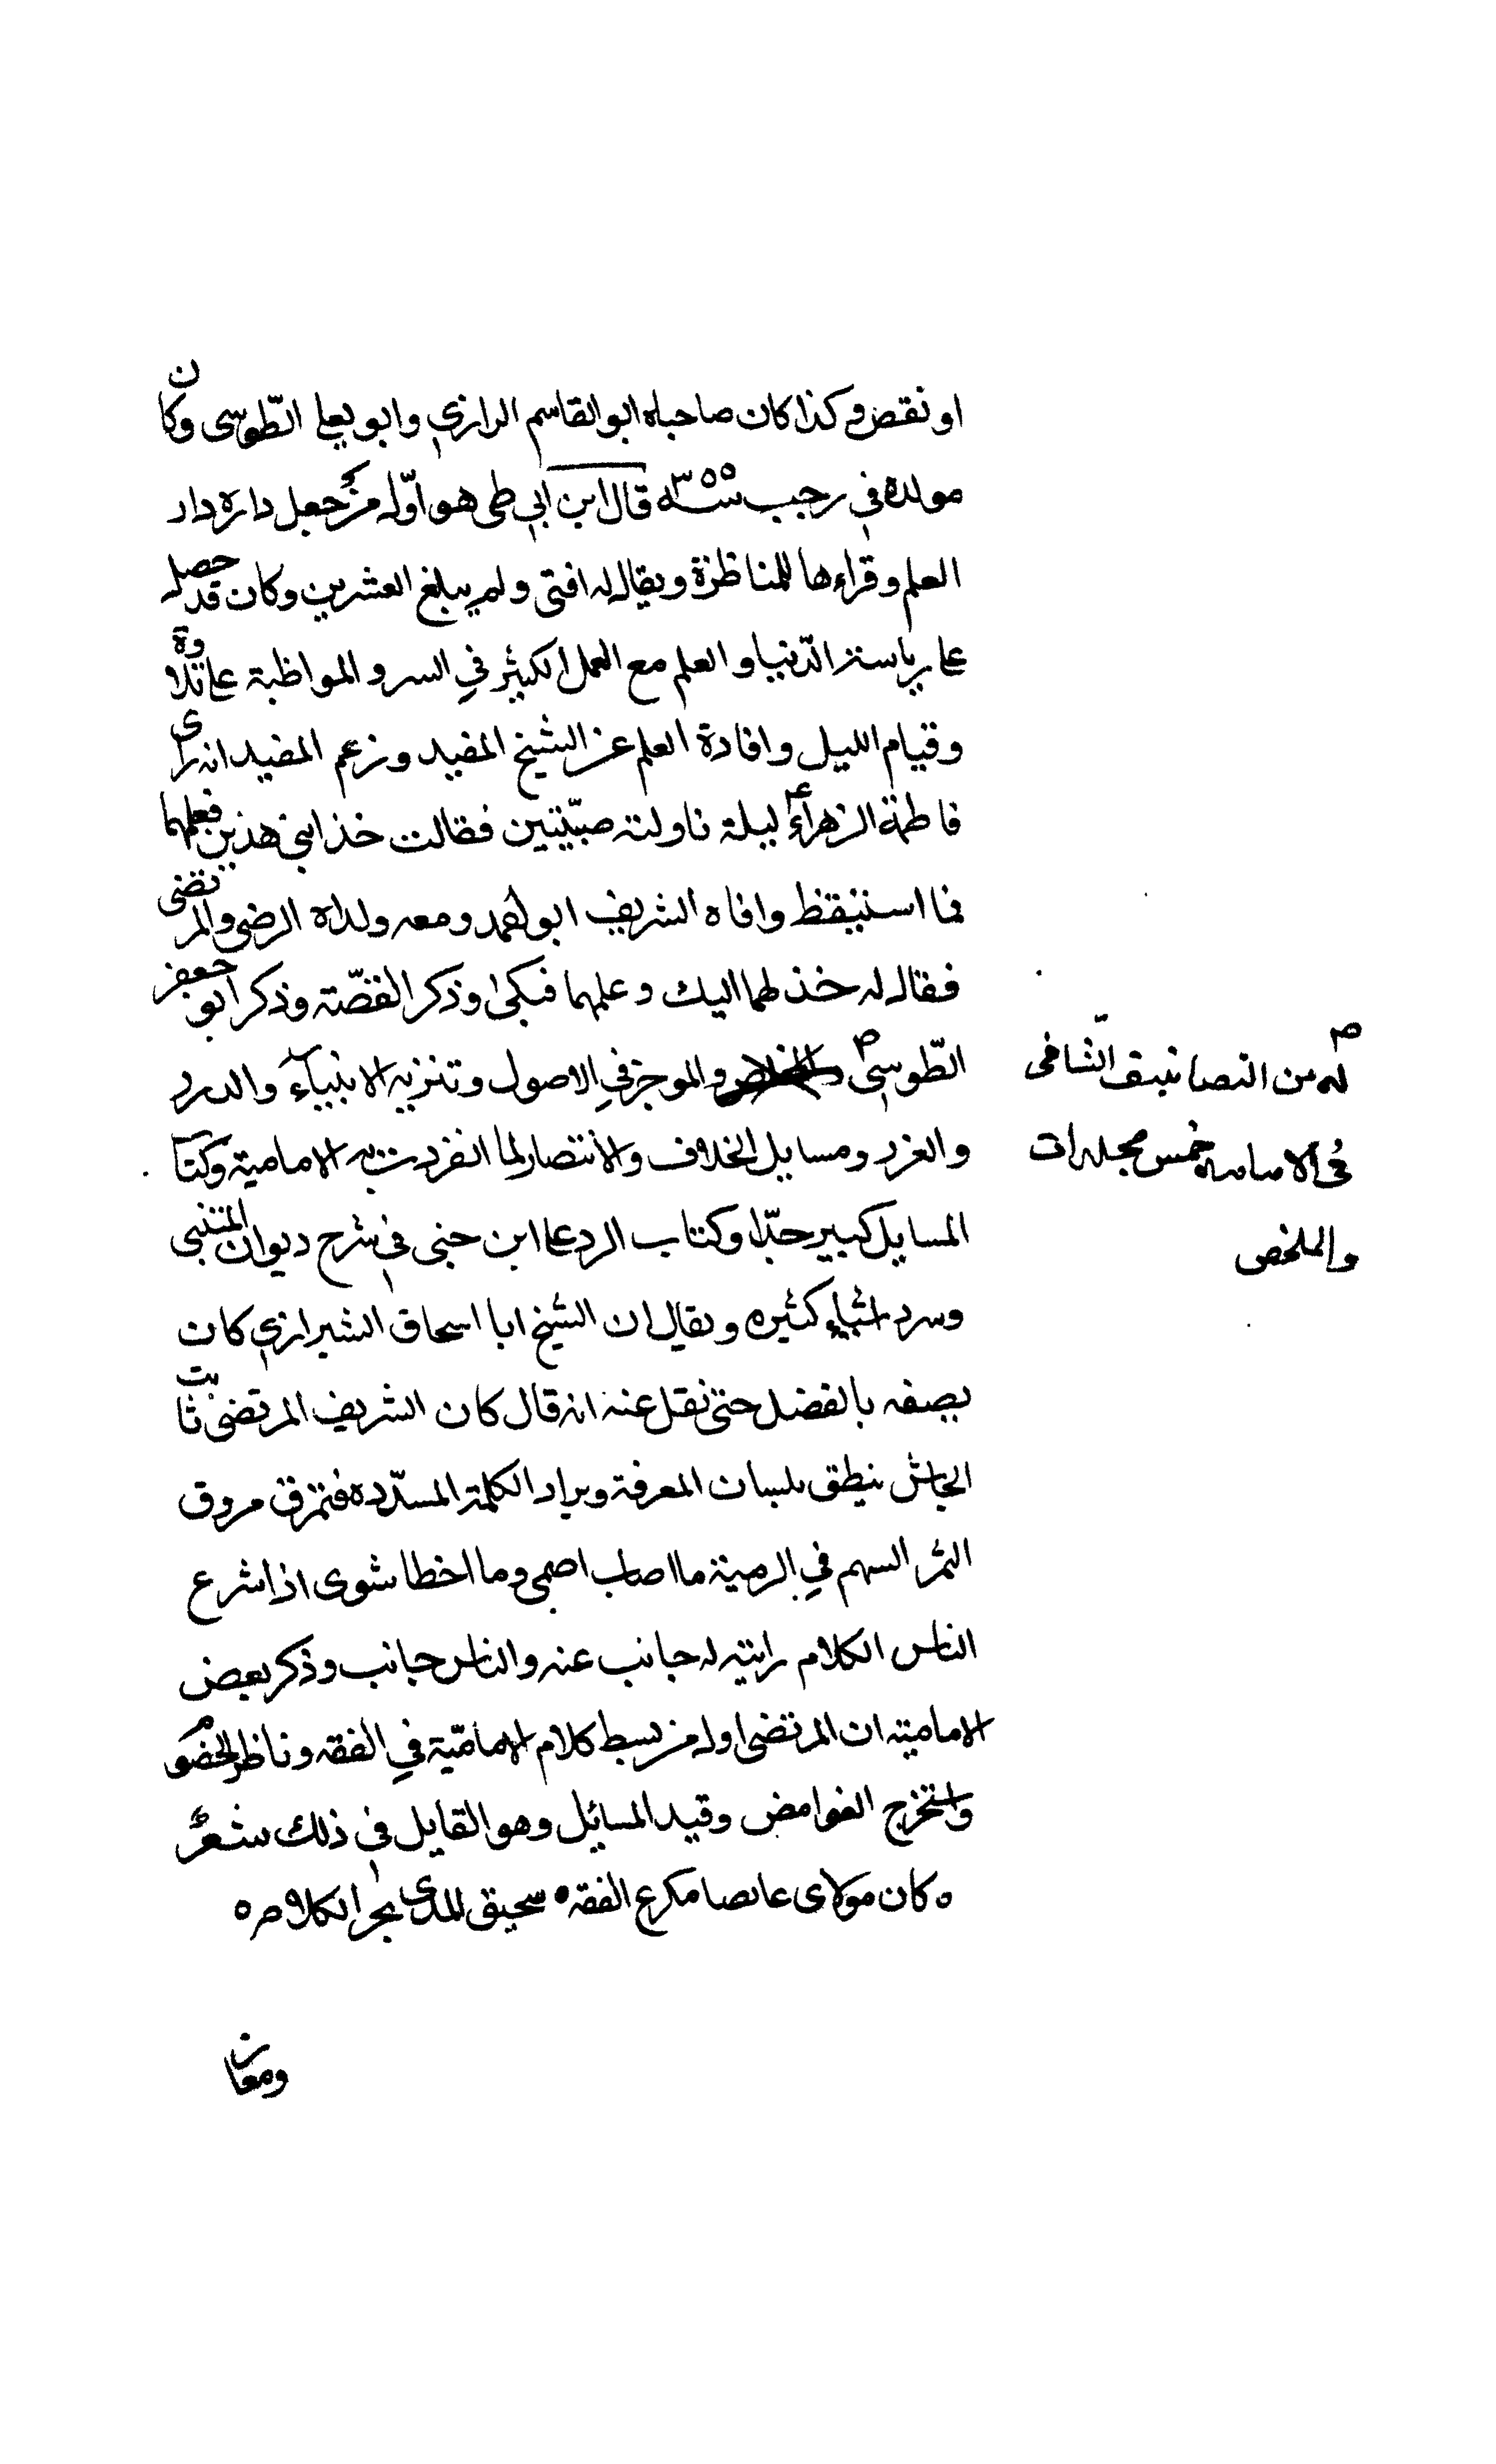 او نقص وكذا كان صاحباه ابو القاسم الرازي وابو يعلى الطّوسى وكان
مولده في رجب سنة ٣٥٥ قال ابن ابي طى هو اوّل من جعل داره دار
العلم وقراءها للمناظرة ويقال له افتى ولم يبلغ العشرين وكان قد حصل
على رياسة الدّنيا والعلم مع العمل الكثير في السر والمواظبة على تلاوة
وقيام الليل وافادة العلم عن الشيخ المفيد وزعم المفيد انه راى
فاطمة الزهراءع ليلة ناولته صبيّتين فقالت خذ ابني هذين فعلمهما
فما استيقظ وافاه الشريف ابو احمد ومعه ولداه الرضى والمرتضى
فقال له خذهما اليك وعلمهما فبكى وذكر القصّة وذكر ابو جعفر
الطّوسى والموجز في الاصول وتنزيه الانبياء والدرر
والغرر ومسايل الخلاف والانتصار لما انفردت به الامامية وكتا
المسايل كبير جدّا وكتاب الرد على ابن جنى في شرح ديوان المتنبى
وسرد اشياء كثيره ويقال ان الشيخ ابا اسحاق الشيرازي كان
يصفه بالفضل حتى نقل عنه انه قال كان الشريف المرتضى ثابت
الجاش ينطق بلسان المعرفة ويراد الكلمة المسدّده فتمرق مروق
السهم في الرمية ما اصاب اصمى وما اخطا شوى اذا شرع
الناس الكلام رايته له جانب عنه والناس جانب وذكر بعض
الامامية ان المرتضى اول من بسط كلام الاماميّة في الفقه وناظر الخصوم
واستخرج الغوامض وقيد المسائل وهو القايل في ذلك شعر
كان مولاى الفقه سحيق المدى بحر الكلام
له من التصانيف الشافى
في الامامه خمس مجلدات
والملخص